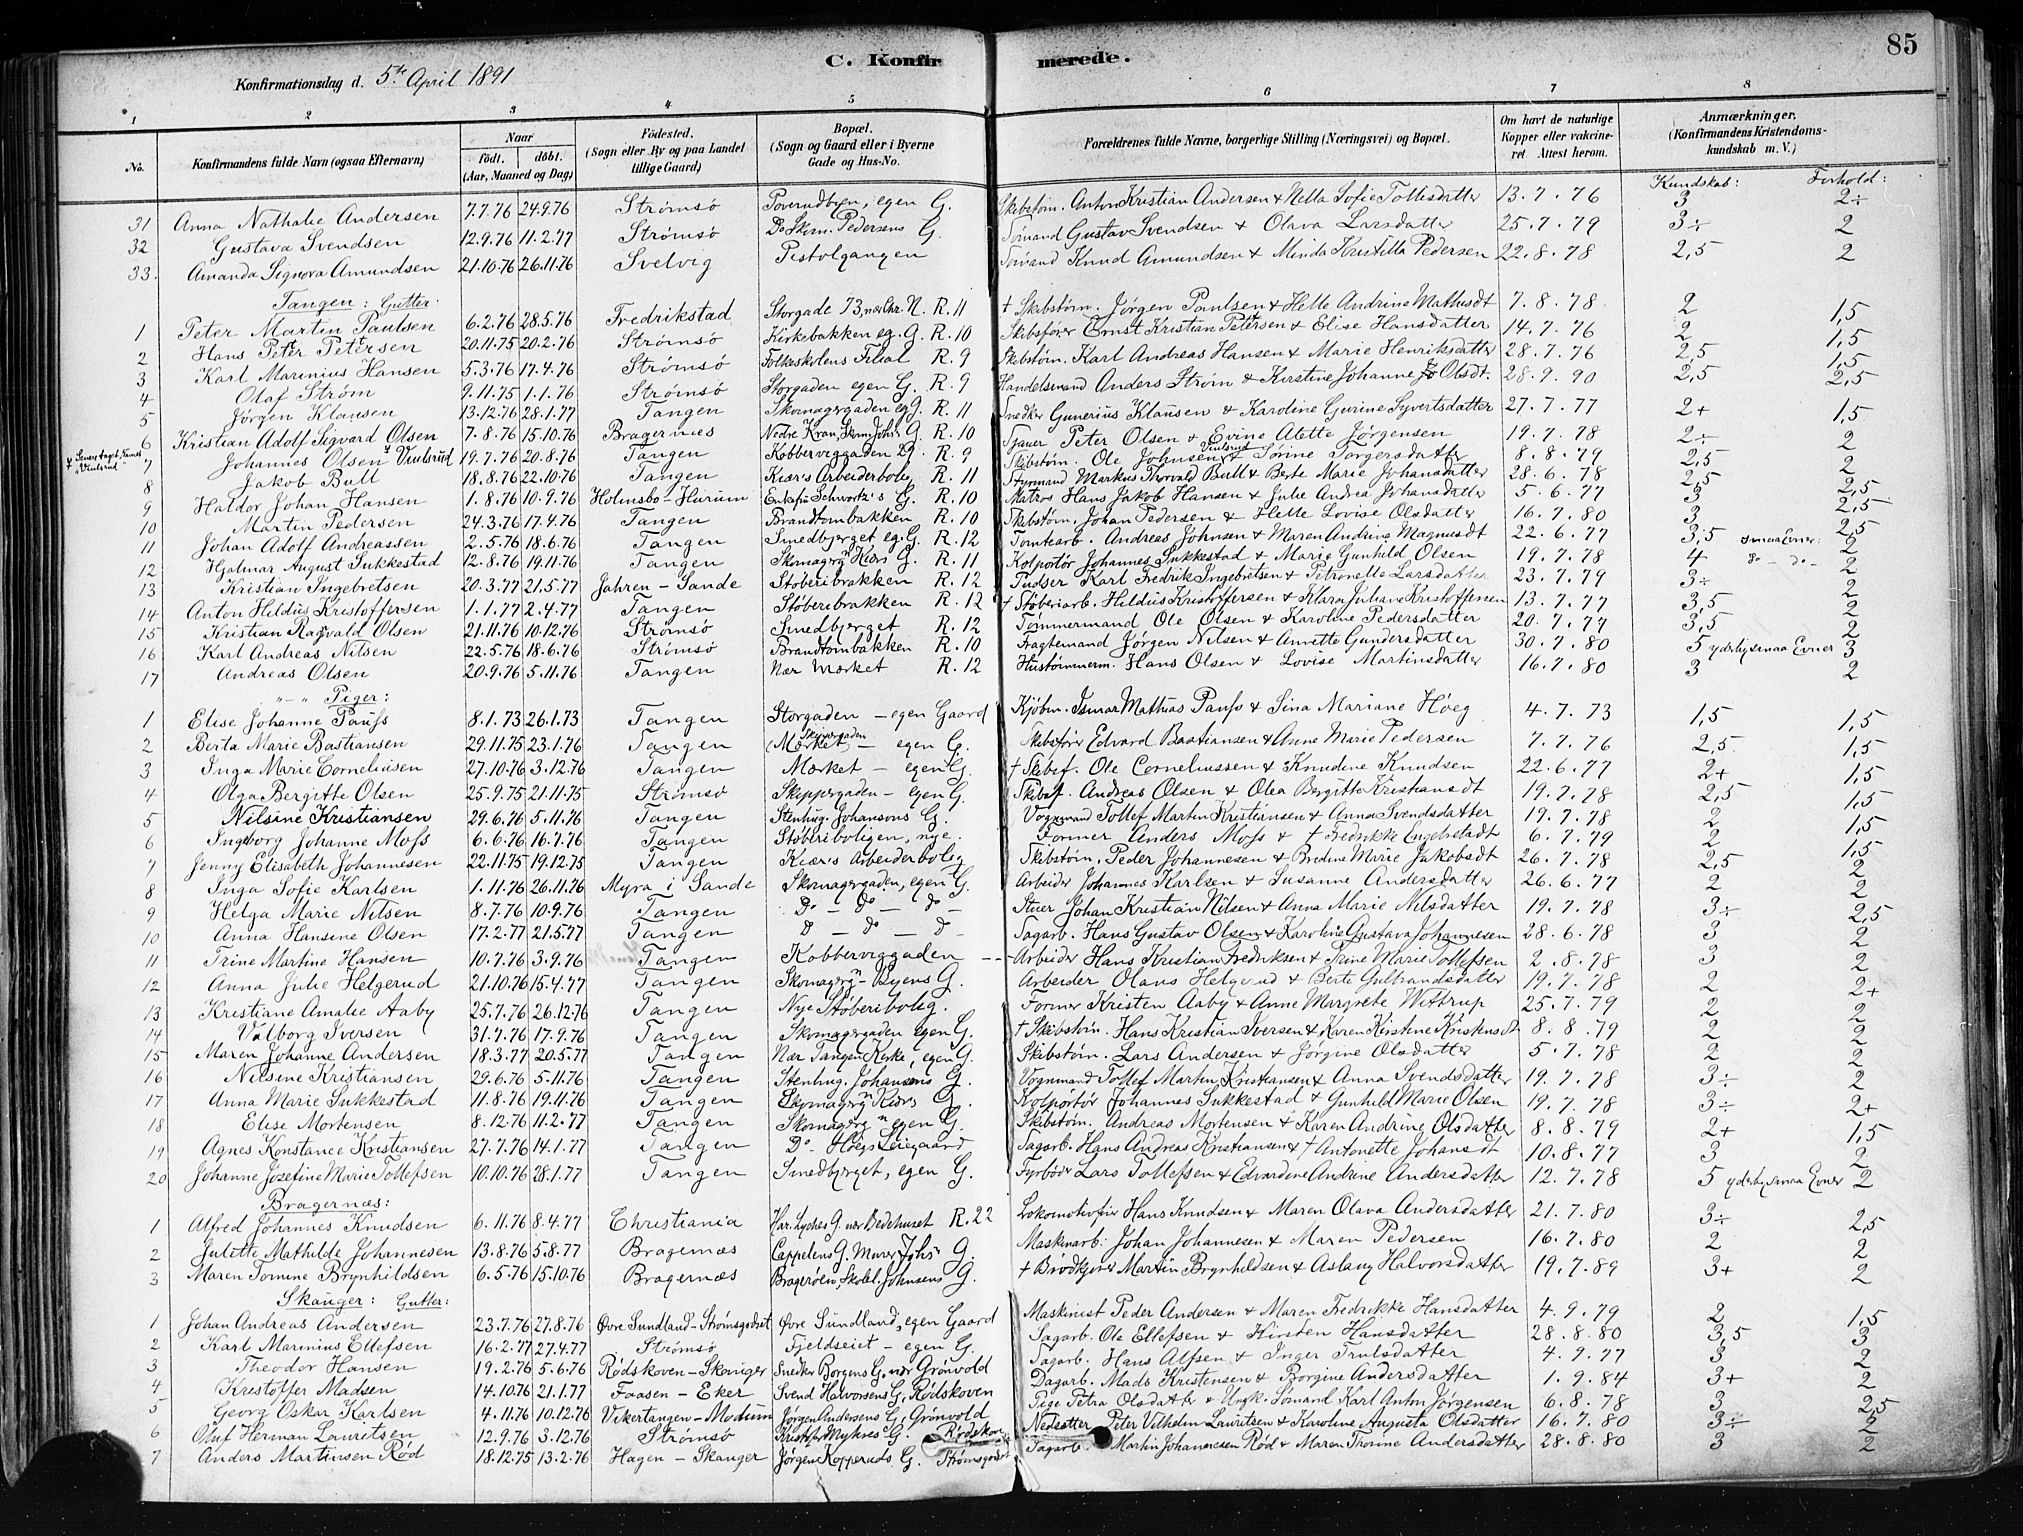 85
C. Konfirmerede.
Konfirmationsdag d. 5te April 1891
1 2 3 4 5 6 7 8
No. Konfirmandens fulde Navn (ogsaa Efternavn) Naar født. døbt. (Aar, Maaned og Dag) Fødested. (Sogn eller By og paa Landet tillige Gaard) Bopæl. (Sogn og Gaard eller i Byerne Gade og Hus-No. Forældrenes fulde Navne, borgerlige Stilling (Næringsvei) og Bopæl. Om havt de naturlige Kopper eller vakcineret. Attest herom. Anmærkninger. (Konfirmandens Kristendomskundskab m. V.)
Kundskab: Forhold:
31 Anna Nathalie Andersen 7.7.76 24.9.76 Strømsø Toverudbyen, egen G. Skibstøm. Anton Kristian Andersen & Nella Sofie Tollisdatter 13.7.76 3 2÷
32 Gustava Svendsen 12.9.76 11.2.77 Strømsø Do Skom. Pedersens G. Sømand Gustav Svendsen & Olava Larsdatter 25.7.79 3÷ 2
33. Amanda Signora Amundsen 21.10.76 26.11.76 Svelvig Pistolgangen Sømand Knud Amundsen & Minda Kristilla Pedersen 22.8.78 2,5 2
Tangen: Gutter:
1 Peter Martin Paulsen 6.2.76 28.5.76 Fredrikstad Storgade 73, nær Chr. N. R. 11 † Skibstøm. Jørgen Paulsen & Helle Andrine Mathisdt 7.8.78 2 1,5
2 Hans Petter Petersen 20.11.75 20.2.76 Strømsø Kirkebakken eg. G. R. 10 Skibsfører Ernst Kristian Petersen & Elise Hansdatter 14.7.76 2 1,5
3 Karl Marinius Hansen 5.3.76 17.4.76 Strømsø Folkeskolens Filial R. 9 Skibstøm. Karl Andreas Hansen & Marie Henriksdatter 28.7.76 2,5 1,5
4 Olaf Strøm 9.11.75 1.1.76 Strømsø Storgaden egen G. R. 9 Handelsmand Anders Strøm & Kirstine Johanne Olsdt. 28.9.90 2,5 2,5
5 Jørgen Klausen 13.12.76 28.1.77 Tangen Skomagergaden eg G. R. 11 Snedker Gunerius Klausen & Karoline Gurine Syvertsdatter 27.7.77 2+ 1,5
6 Kristian Adolf Sigvard Olsen 7.8.76 15.10.76 Bragernæs Nedre Kran, Skom Johs G. R. 10 Sjauer Peter Olsen & Evine Alette Jørgensen 19.7.78 2÷ 2
7 Johannes Olsen Vinlsrud 19.7.76 20.8.76 Tangen Kobberviggaden R. 9 Skibstøm. Ole Johnsen Vinlsrud & Sørine Torgersdatter 8.8.79 2,5 2
8 Jakob Bull 18.8.76 22.10.76 Tangen Kiær's Arbeiderbolig R. 11 Styrmand Markus Thorvald Bull & Berte Marie Johansdatter 28.6.78 2,5 2
9 Haldor Johan Hansen 1.8.76 10.9.76 Holmsbo-Hurum Enkefru Schwartz's G. R. 10 Matros Hans Jakob Hansen & Julie Andrea Johansdatter 5.6.77 3 2,5
10 Martin Pedersen 24.3.76 17.4.76 Tangen Brandtornbakken R. 10 Skibstøm. Johan Pedersen & Helle Lovise Olsdatter 16.7.80 3 2,5
11 Johan Adolf Andreassen 2.5.76 18.6.76 Tangen Smedbjerget eg. G. R. 12 Tomtearb. Andreas Johnsen & Maren Andrine Magnusdt 22.6.77 3,5 smaa Evner: 2,5
12 Hjalmar August Sukkestad 12.8.76 19.11.76 Tangen Skomagerg Kiærs G. R. 11 Kolportør Johannes Sukkestad & Marie Gunhild Olsen 19.7.78 4 do - do - 2
13 Kristian Ingebretsen 20.3.77 21.5.77 Jahren - Sande Støberibakken R. 12 Pudser Karl Fredrik Ingebretsen & Petronelle Larsdatter 23.7.79 3÷ 2
14 Anton Hildus Kristoffersen 1.1.77 2.4.77 Tangen Støberibakken R. 12 † Støberiarb. Hildus Kristoffersen & Klara Juliane Kristoffersen 13.7.77 3,5 2
15 Kristian Ragvald Olsen 21.11.76 10.12.76 Strømsø Smedbjerget R. 12 Tømmermand Ole Olsen & Karoline Pedersdatter 20.7.77 3,5 2
16 Karl Andreas Nilsen 22.5.76 18.6.76 Strømsø Brandtornbakken R. 10 Fragtemand Jørgen Nilsen & Annette Gundersdatter 30.7.80 5 yderlig smaa Evner 3
17 Andreas Olsen 20.9.76 5.11.76 Tangen Nær Mærket R. 12 Hustømmerm. Hans Olsen & Lovise Martinsdatter 16.7.80 3 2
Piger:
1 Elise Johanne Pauss 8.1.73 26.1.73 Tangen Storgaden - egen Gaard Kjøbm. Ismar Mathias Pauss & Sina Mariane Høeg 4.7.73 1,5 1,5
2 Berta Marie Bastiansen 29.11.75 23.1.76 Tangen (Mærket) - egen G. Skibsfører Edvard Bastiansen & Anne Marie Pedersen 7.7.76 2,5 1,5
3 Inga Marie Corneliusen 27.10.76 3.12.76 Tangen Mærket - egen G. † Skibsf. Ole Corneliussen & Knudine Knudsen 22.6.77 2+ 1,5
4 Olga Bergitte Olsen 25.9.75 21.11.75 Strømsø Skippergaden - egen G. Skibsf. Andreas Olsen & Olea Bergitte Kristiansdt 19.7.78 2,5 1,5
5 Nilsine Kristiansen 29.6.76 5.11.76 Tangen Stenhug. Johansens G. Vognmand Tollef Martin Kristiansen & Anna Svendsdatter 19.7.78 2 1,5
6 Ingeborg Johanne Moss 6.6.76 16.7.76 Tangen Støberiboligen, nye. Former Anders Moss & † Fredrikke Engebretsdt 6.7.79 2 1,5
7 Jenny Elisabeth Johannesen 22.11.75 19.12.75 Tangen Kiær's Arbeiderbolig Skibstøm. Peder Johannesen & Bredine Marie Jakobsdt 26.7.78 2,5 2
8 Inga Sofie Karlsen 1.11.76 26.11.76 Myra i Sande Skomagergaden, egen G. Arbeider Johannes Karlsen & Susanne Andersdatter 26.6.77 2 2
9 Helga Marie Nilsen 8.7.76 10.9.76 Tangen Do - do - do - Stuer Johan Kristian Nilsen & Anna Marie Nilsdatter 19.7.78 3÷ 2,5
10 Anna Hansine Olsen 17.2.77 21.5.77 Tangen Do - do - do - Sagarb. Hans Gustav Olsen & Karoline Gustava Johannesen 28.6.78 3 2
11 Trine Martine Hansen 10.7.76 3.9.76 Tangen Kobberviggaden Arbeider Hans Kristian Fredriksen & Trine Marie Tollefsen 2.8.78 3 2
12 Anna Julie Helgerud 21.10.76 15.4.77 Tangen Skomagerg - Byens G. Arbeider Olaus Helgerud & Berte Gulbrandsdatter 19.7.78 2 2+
13 Kristiane Amalie Aaby 25.7.76 26.12.76 Tangen Nye Støberibolig. Former Kristen Aaby & Anne Margrete Wittrup 25.7.79 2 2
14 Valborg Iversen 31.7.76 17.9.76 Tangen Skomagergaden egen G. † Skibstøm. Hans Kristian Iversen & Karen Kirstine Kristensdt 8.8.79 2 2
15 Maren Johanne Andersen 18.3.77 20.5.77 Tangen Nær Tangen Kirke, egen G. Skibstøm. Lars Andersen & Jørgine Olsdatter 5.7.78 2 2
16 Nilsine Kristiansen 29.6.76 5.11.76 Tangen Stenhug. Johansens G. Vognmand Tollef Martin Kristiansen & Anna Svendsdatter 19.7.78 3÷ 2
17 Anna Marie Sukkestad 11.8.76 19.11.76 Tangen Skomagerg Kiærs G. Kolportør Johannes Sukkestad & Gunhild Marie Olsen 19.7.78 3÷ 2+
18 Elise Mortensen 8.12.76 11.2.77 Tangen Skomagerg - egen G. Skibstøm. Andreas Mortensen & Karen Andrine Olsdatter 8.8.79 2+ 1,5
19 Agnes Konstance Kristiansen 27.7.76 14.1.77 Tangen Do Høegs Leiegaard Sagarb. Hans Andreas Kristiansen & † Antonette Johansdt 10.8.77 3 2
20 Johanne Josefine Marie Tollefsen 10.10.76 28.1.77 Tangen Smedbjerget, egen G. Fyrbøder Lars Tollefsen & Edvardine Andrine Andersdatter 12.7.78 5 yderlig smaa Evner 2
Bragernæs:
1 Alfred Johannes Knudsen 6.11.76 8.4.77 Christiania Har. Lyches G. nær Bedehuset R. 22 Lokomotivfør Hans Knudsen & Maren Olava Andersdatter 21.7.80 3÷ 2,5
2 Juliette Mathilde Johannesen 13.8.76 5.8.77 Bragernæs Cappelens G. Murer Johs G. Maskinarb. Johan Johannesen & Maren Pedersen 16.7.80 2 2
3 Maren Tomine Brynhildsen 6.5.76 15.10.76 Bragernæs Bragerøen, Skolel. Johnsens G. † Brødkjører Martin Brynhildsen & Aslaug Halvorsdatter 19.7.89 3+ 2
Skauger: Gutter:
1 Johan Andreas Andersen 23.7.76 27.8.76 Øvre Sundland-Strømsgodset Øvre Sundland, egen Gaard Maskinist Peder Andersen & Maren Fredrikke Hansdatter 4.9.79 2 1,5
2 Karl Marinius Ellefsen 16.2.77 27.4.77 Strømsø Fjeldseiet - egen G. Sagarb. Ole Ellefsen & Kirsten Hansdatter 28.8.80 3,5 3
3 Theodor Hansen 19.2.76 5.6.76 Rødskoven-Skauger Snedker Borgens G. nær Grønvold Sagarb. Hans Alfsen & Inger Trulsdatter 4.9.77 3 2
4 Kristoffer Madsen 14.10.76 21.1.77 Faasen - Eker Svend Halvorsens G, Rødskoven Dagarb. Mads Kristensen & Borgine Andersdatter 1.9.84 3+ 2
5 Georg Oskar Karlsen 4.11.76 10.12.76 Vikertangen-Modum Jørgen Andersens G, Grønvold Pige Petra Olsdatter & Ungk. Sømand Karl Anton Jørgensen 6.8.78 3 2,5
6 Oluf Herman Lauritsen 12.9.76 3.12.76 Strømsø Kristoffer Myhres G. Rødskov. Nedsætter Peter Vilhelm Lauritsen & Karoline Augusta Olsdatter 16.7.80 3÷ 2
7 Anders Martinsen Rød 18.12.75 13.2.76 Hagen - Skauger Jørgen Kopperuds G. Strømsgodset Sagarb. Martin Johannesen Rød & Maren Thorine Andersdatter 28.8.80 3 2